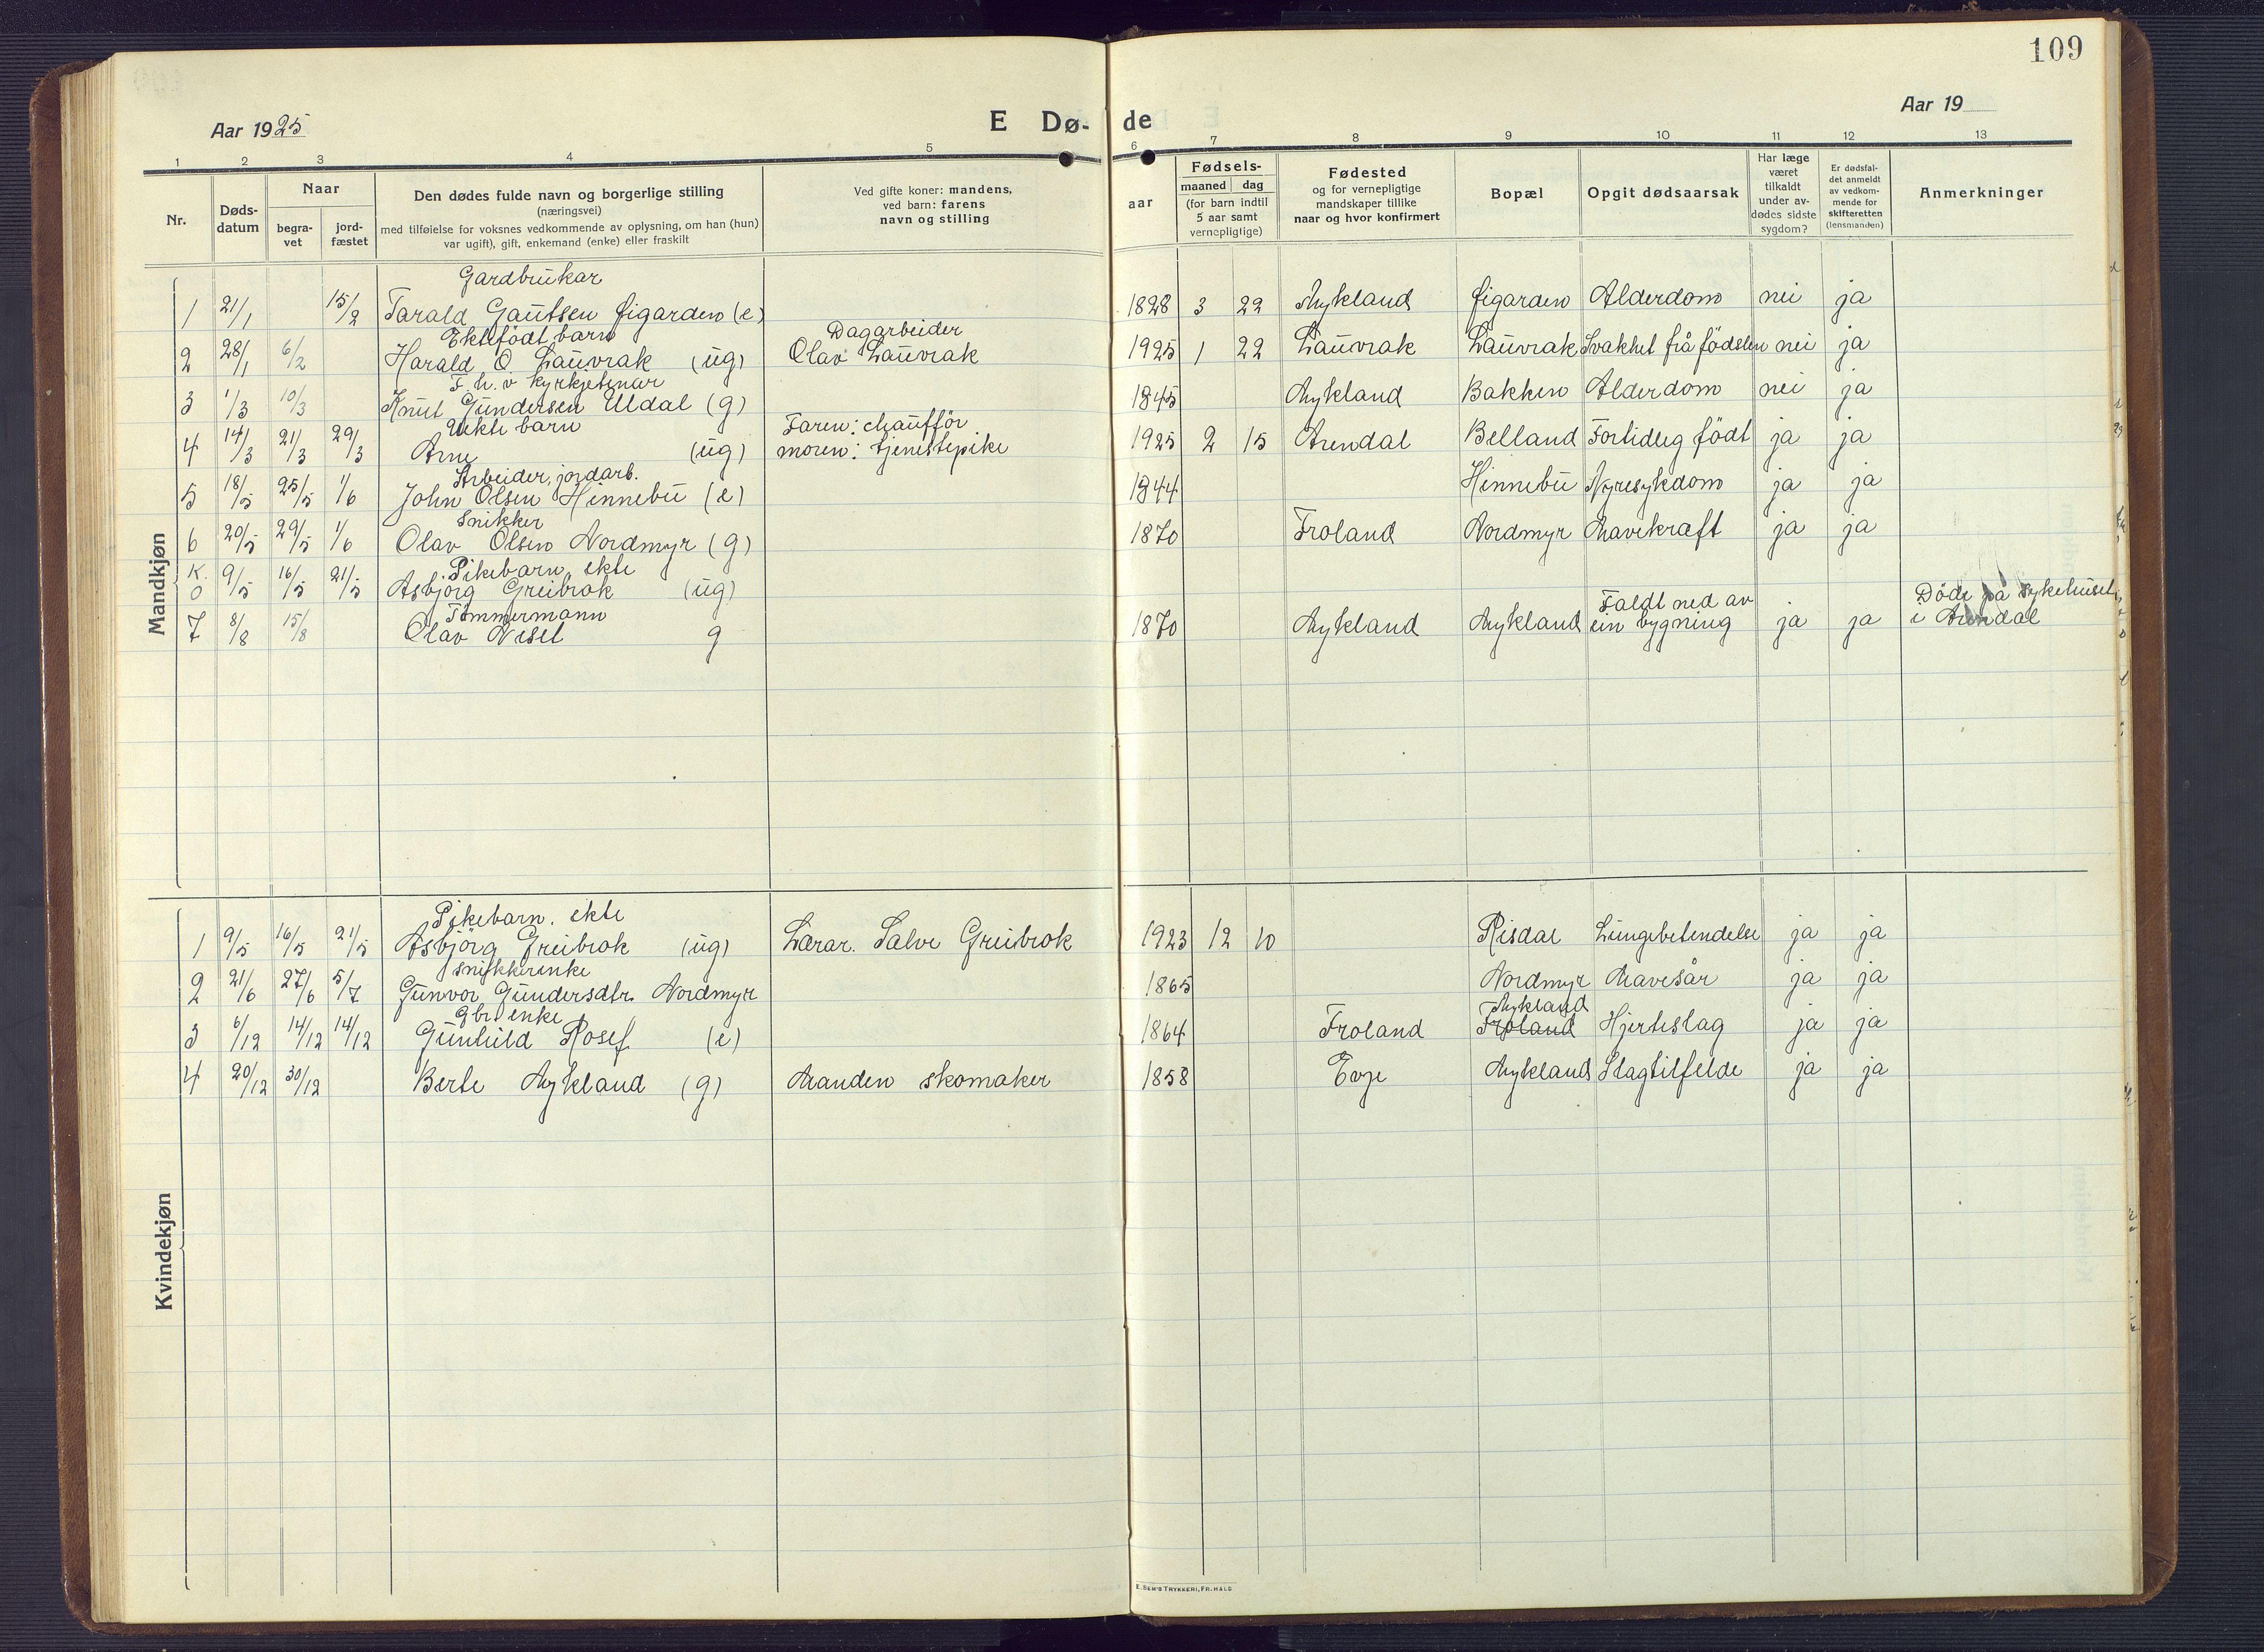 109
Aar 1925
E Dø- de
Aar 19
1 2 3 4 5 6 7 8 9 10 11 12 13
Nr.
Døds-
datum
Naar
begra-
vet
jord-
fæstet
Den dødes fulde navn og borgerlige stilling
(næringsvei)
med tilføielse for voksnes vedkommende av oplysning, om han (hun)
var ugift), gift, enkemand (enke) eller fraskilt
Ved gifte koner: mandens,
ved barn: farens
navn og stilling
aar
Fødsels-
maaned dag
(for barn indtil
5 aar samt
vernepligtige)
Fødested
og for vernepligtige
mandskaper tillike
naar og hvor konfirmert
Bopæl
Opgit dødsaarsak
Har læge
været
tilkaldt
under av-
dødes sidste
sygdom?
Er dødsfal-
det anmeldt
av vedkom-
mende for
skifteretten
(lensmanden)
Anmerkninger
Mandkjøn
Gardbrukar
1 21/1 15/2 Tarald Gautsen Øigarden (e) 1828 3 22 Mykland Øigarden Alderdom nei ja
Ektefödt barn Dagarbeider
2 28/1 6/2 Harald O Lauvrak (ug) Olav Lauvrak 1925 1 22 Lauvrak Lauvrak Svakhet frå födslen nei ja
F. h. v kyrkjetenar
3 1/3 10/3 Knut Gundersen Uldal (g) 1845 Mykland Bakken Alderdom nei ja
Uekte barn Faren: chaufför
4 14/3 21/3 29/3 Arne (ug) moren: tjenestepike 1925 2 15 Arendal Belland Fortidleg födt ja ja
Arbeider, jordarb.
5 18/5 25/5 1/6 John Olsen Hinnebu (e) 1844 Hinnebu Nyresykdom ja ja
Snikker
6 20/5 29/5 1/6 Olav Olsen Nordmyr (g) 1870 Froland Nordmyr Mavekræft ja ja
K. Pikebarn, ekte
0 9/5 16/5 21/5 Asbjörg Greibrok (ug)
Tömmermann Faldt ned av Döde på sykehuset
7 8/8 15/8 Olav Neset g 1870 Mykland Mykland ein bygning ja ja i Arendal
Kvindekjøn
Pikebarn. ekte
1 9/5 16/5 21/5 Asbjörg Greibrok (ug) Lærar. Salve Greibrok 1923 12 10 Risdal Lungebetendelse ja ja
Snikkerenke
2 21/6 27/6 5/7 Gunvor Gundersdtr. Nordmyr 1865 Nordmyr Mavesår ja ja
Gbr enke Mykland
3 6/12 14/12 14/12 Gunhild Rosef (e) 1864 Froland Froland Hjerteslag ja ja
4 20/12 30/12 Berte Mykland (g) Manden skomaker 1858 Evje Mykland Slagtilfelde ja ja
E. SEM'S TRYKKERI, FR.HALD